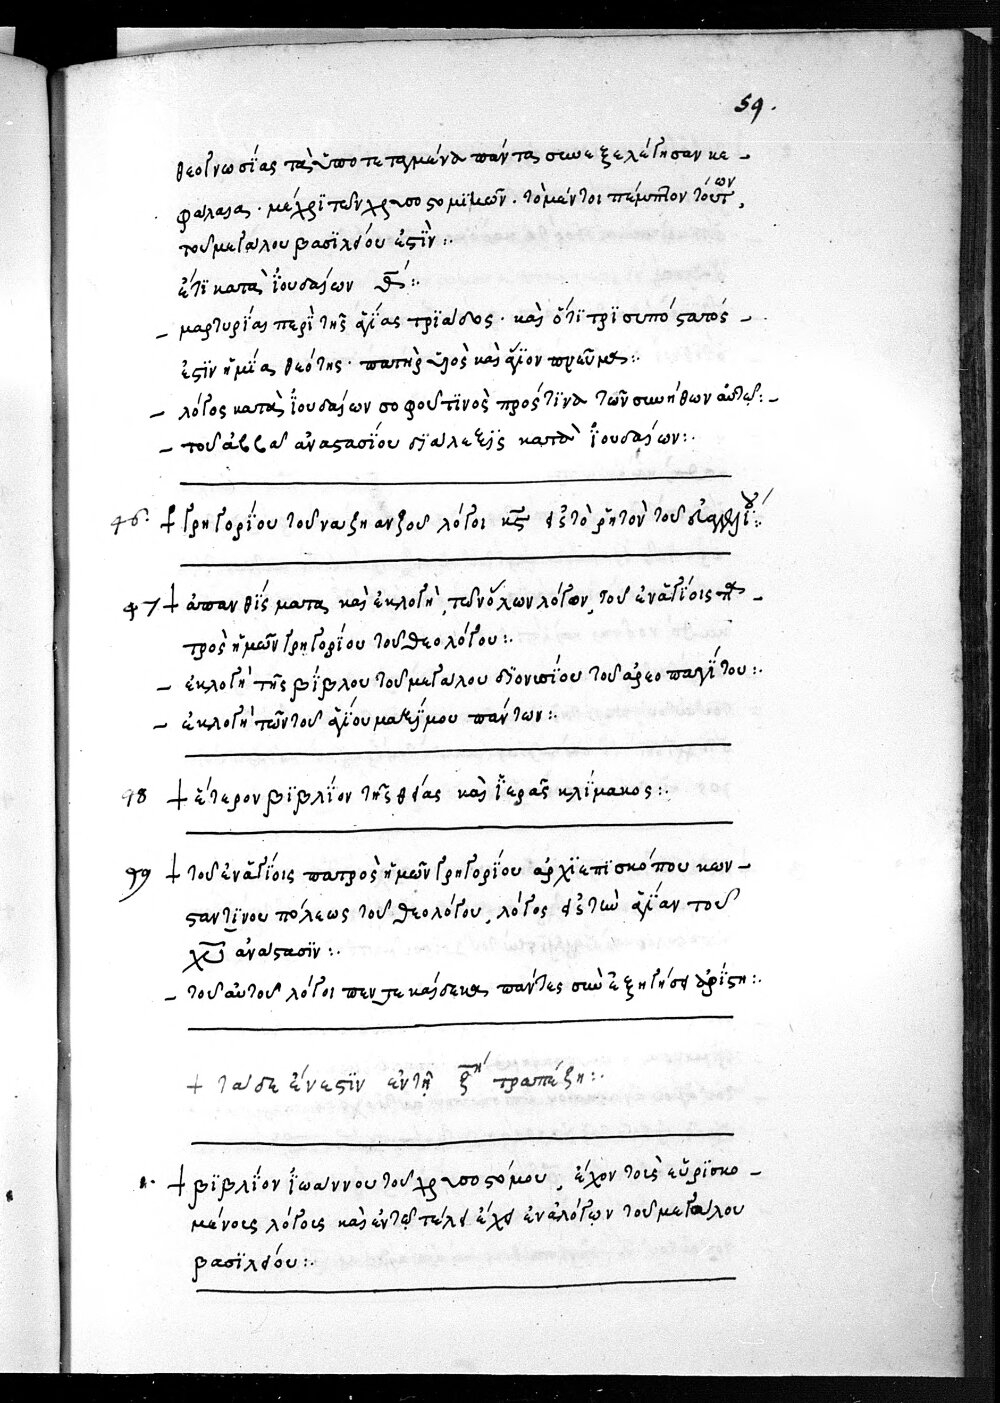 59.
θεογνωσίας τὰ ὑποτεταγμένα πάντα συνεξελέγησαν κε-
φάλαια · μέχρι τῶν χρυσοστόμι ἡμῶν · τὸ μέντοι πέμπτον τούτων,
τοῦ μεγάλου βασιλείου ἐστίν :·
ἔτι κατὰ ἰουδαίων
– μαρτυρίαι περὶ τῆς ἁγίας τριάδος · καὶ ὅτι τρισυπόστατός –
ἐστιν ἡ μία θεότης · πατὴρ υἱὸς καὶ ἅγιον πνεῦμα :·
– λόγος κατὰ ἰουδαίων σοφοῦ τινὸς πρός τινα τῶν συνήθων αὐτοῦ :–
– τοῦ ἀββᾶ ἀναστασίου διάλεξις κατὰ ἰουδαίων :·
96· + γρηγορίου τοῦ ναζηανζοῦ λόγοι κϛ εἰς τὸ ρητὸν τοῦ εὐαγγελίου :·
97 + ἀπανθίσματα καὶ ἐκλογὴ, τῶν ὅλων λόγων, τοῦ ἐν ἁγίοις π̅ρ̅ –
πρὸς ἡμῶν γρηγορίου τοῦ θεολόγου :·
– ἐκλογὴ τῆς βίβλου τοῦ μεγάλου διονισίου τοῦ ἀρεοπαγίτου :·
– ἐκλογὴ τῶν τοῦ ἁγίου μαξίμου πάντων :·
98 + ἕτερον βιβλίον τῆς θείας καὶ ἱερᾶς κλίμακος :·
99 + τοῦ ἐν ἁγίοις παπρὸς ἡμῶν γρηγορίου ἀρχιεπισκόπου κων–
σταντινουπόλεως τοῦ θεολόγου, λόγος εἰς τὼ ἁγίαν τοῦ
χ̅υ̅ ἀνάστασιν :·
– τοῦ αὐτοῦ λόγοι πεντεκαίδεκα πάντες σὺν ἐξηγήσει ἀρίστη :·
+ τάδε ἔνεστιν ἐν τῇ ξ̅ῃ τραπέζη :·
1· + βιβλίον ἰωάννου τοῦ χρυσοστόμου, ἔχον τοῖς εὑρισκο –
μένοις λόγοις καὶ ἐν τῷ τέλει ἔχει ἕνα λόγων τοῦ μεγάλου
βασιλείου :·